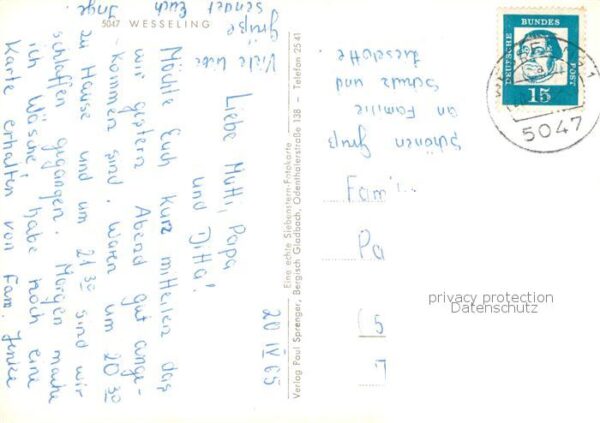 5047 WESSELING
20 IV 65
Liebe Mutti, Papa
und Ditta!
Möchte Euch kurz mitteilen das
wir gestern Abend gut ange-
kommen sind. Waren um 20 30
zu Hause und um 21 30 sind wir
schlaffen gegangen. Morgen mache
ich Wäsche! habe noch eine
Karte erhalten von Fam.
Viele liebe
Grüße
sendet Euch
Inge
Verlag Paul Sprenger, Bergisch Gladbach, Odenthalerstraße 138 — Telefon 25 41
Eine echte Siebenstern-Fotokarte
Schönen Gruß
an Familie
Schulz und
Lieselotte
DEUTSCHE
BUNDES
POST
15
5047
Fam
Pa
(5
privacy protection
Datenschutz